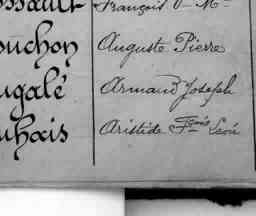 François
ouchon Auguste Pierre
ugalé Armand Joseph
uhais Aristide Fçois Léon